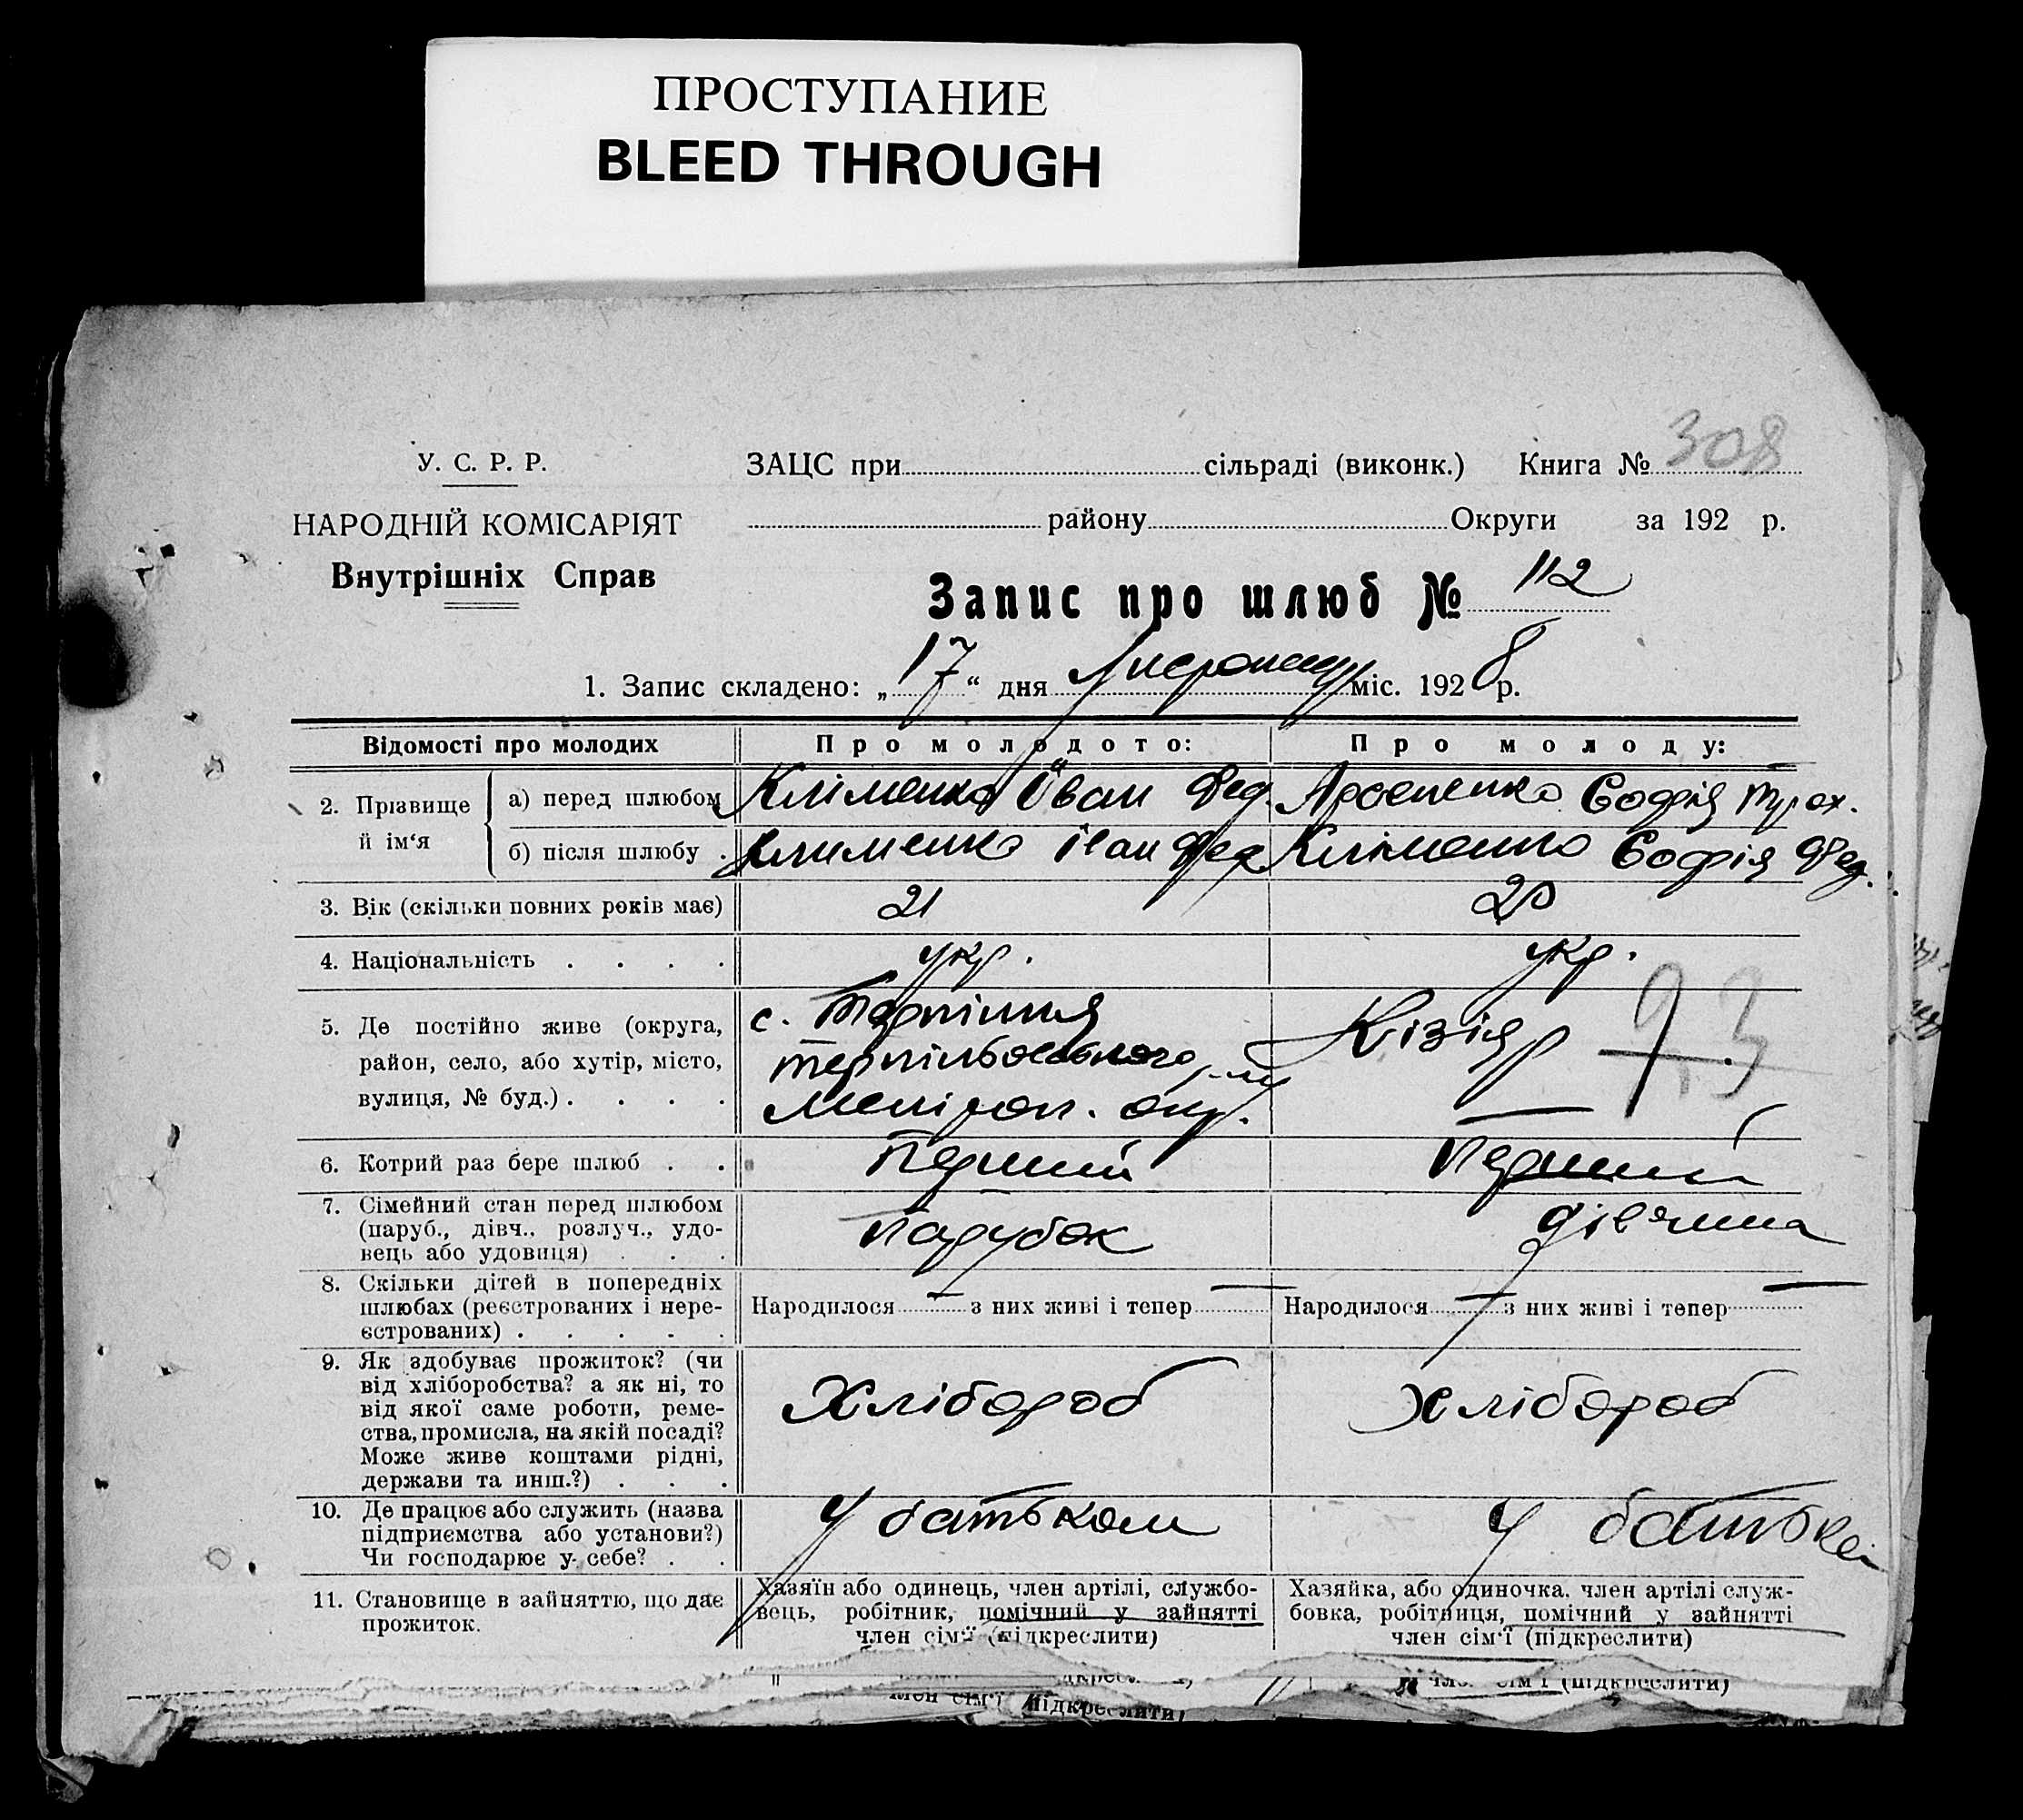 ПРОСТУПАНИЕ
BLEED THROUGH
308
У. С. Р. Р.
ЗАЦС при сільраді (виконк.) Книга №
НАРОДНІЙ КОМІСАРІЯТ
району Округи за 192 р.
Внутрішніх Справ
Запис про шлюб № 112
1. Запис складено: „17“ дня міс. 1928 р.
Відомості про молодих
Про молодого:
Про молоду:
2. Прізвище й ім‘я
а) перед шлюбом
Кліменко Іван Фед.
Арсененко Софія Трох.
б) після шлюбу .
Клименко Іван Фед
Кліменко Софія Фед.
3. Вік (скільки повних років має)
21
20
4. Національність . . . .
укр.
укр.
5. Де постійно живе (округа,
район, село, або хутір, місто,
вулиця, № буд.) . . . .
с. Терпіння
Мелітоп. окр.
Кізіяр
93
6. Котрий раз бере шлюб . .
Перший
Перший
7. Сімейний стан перед шлюбом
(паруб., дівч., розлуч., удо-
вець або удовиця) . . .
Парубок
дівчина
8. Скільки дітей в попередніх
шлюбах (реєстрованих і нере-
єстрованих) . . . . .
Народилося — з них живі і тепер —
Народилося — з них живі і тепер —
9. Як здобуває прожиток? (чи
від хліборобства? а як ні, то
від якої саме роботи, реме-
ства, промисла, на якій посаді?
Може живе коштами рідні,
держави та инш.?) . . .
Хлібороб
Хлібороб
10. Де працює або служить (назва
підприємства або установи?)
Чи господарює у себе? . .
У батьком
У батька
11. Становище в зайняттю, що дає
прожиток.
Хазяїн або одинець, член артілі, службо-
вець, робітник, помічний у зайнятті
член сім‘ї (підкреслити)
Хазяйка, або одиночка. член артілі служ-
бовка, робітниця, помічний у зайнятті
член сім‘ї (підкреслити)
член сім‘ї (підкреслити)
член сім‘ї (підкреслити)